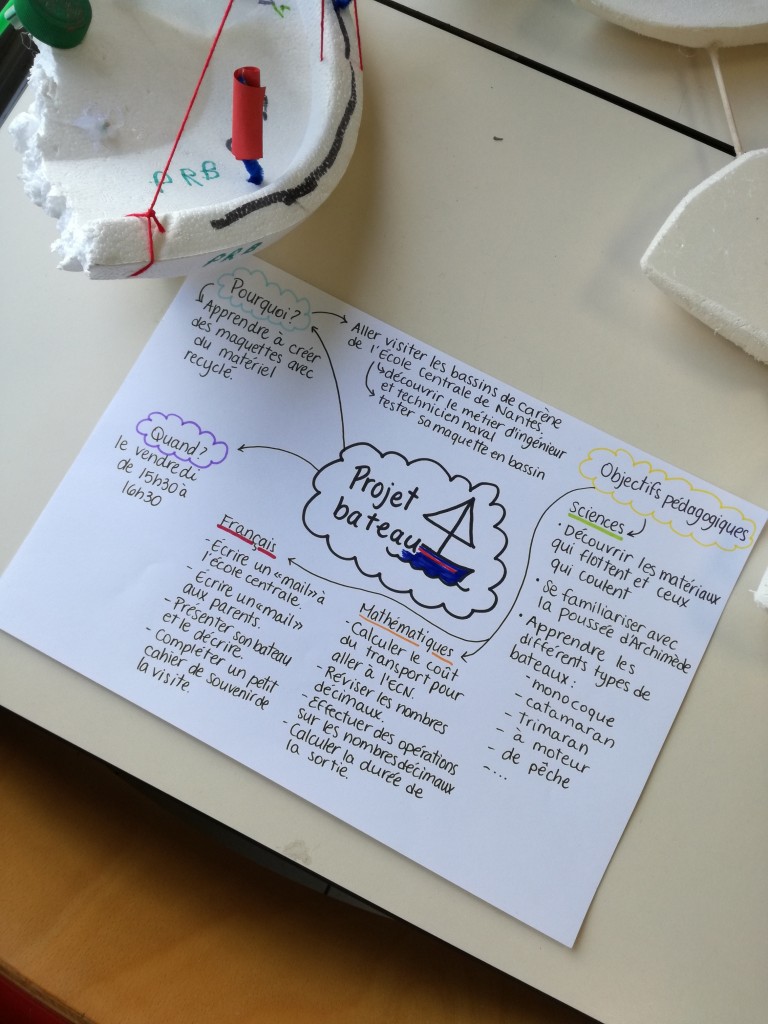 PRB
PRB
Pourquoi?
Apprendre à créer
des maquettes avec
du matériel
recyclé.
Aller visiter les bassins de carène
de l'École Centrale de Nantes.
découvrir le métier d'ingénieur
et technicien naval
tester sa maquette en bassin
Quand?
le vendredi
de 15h30 à
16h30
Projet
bateau
Objectifs pédagogiques
Sciences
• Découvrir les matériaux
qui flottent et ceux
qui coulent
• Se familiariser avec
la poussée d'Archimède
• Apprendre les
différents types de
bateaux :
- monocoque
- catamaran
- Trimaran
- à moteur
- de pêche
- ...
Français
- Ecrire un «mail» à
l'école centrale.
- Ecrire un «mail»
aux parents.
- Présenter son bateau
et le décrire.
- Compléter un petit
cahier de souvenir de
la visite.
Mathématiques
- Calculer le coût
du transport pour
aller à l'ECN.
- Réviser les nombres
décimaux.
- Effectuer des opérations
sur les nombres décimaux
- Calculer la durée de
la sortie.